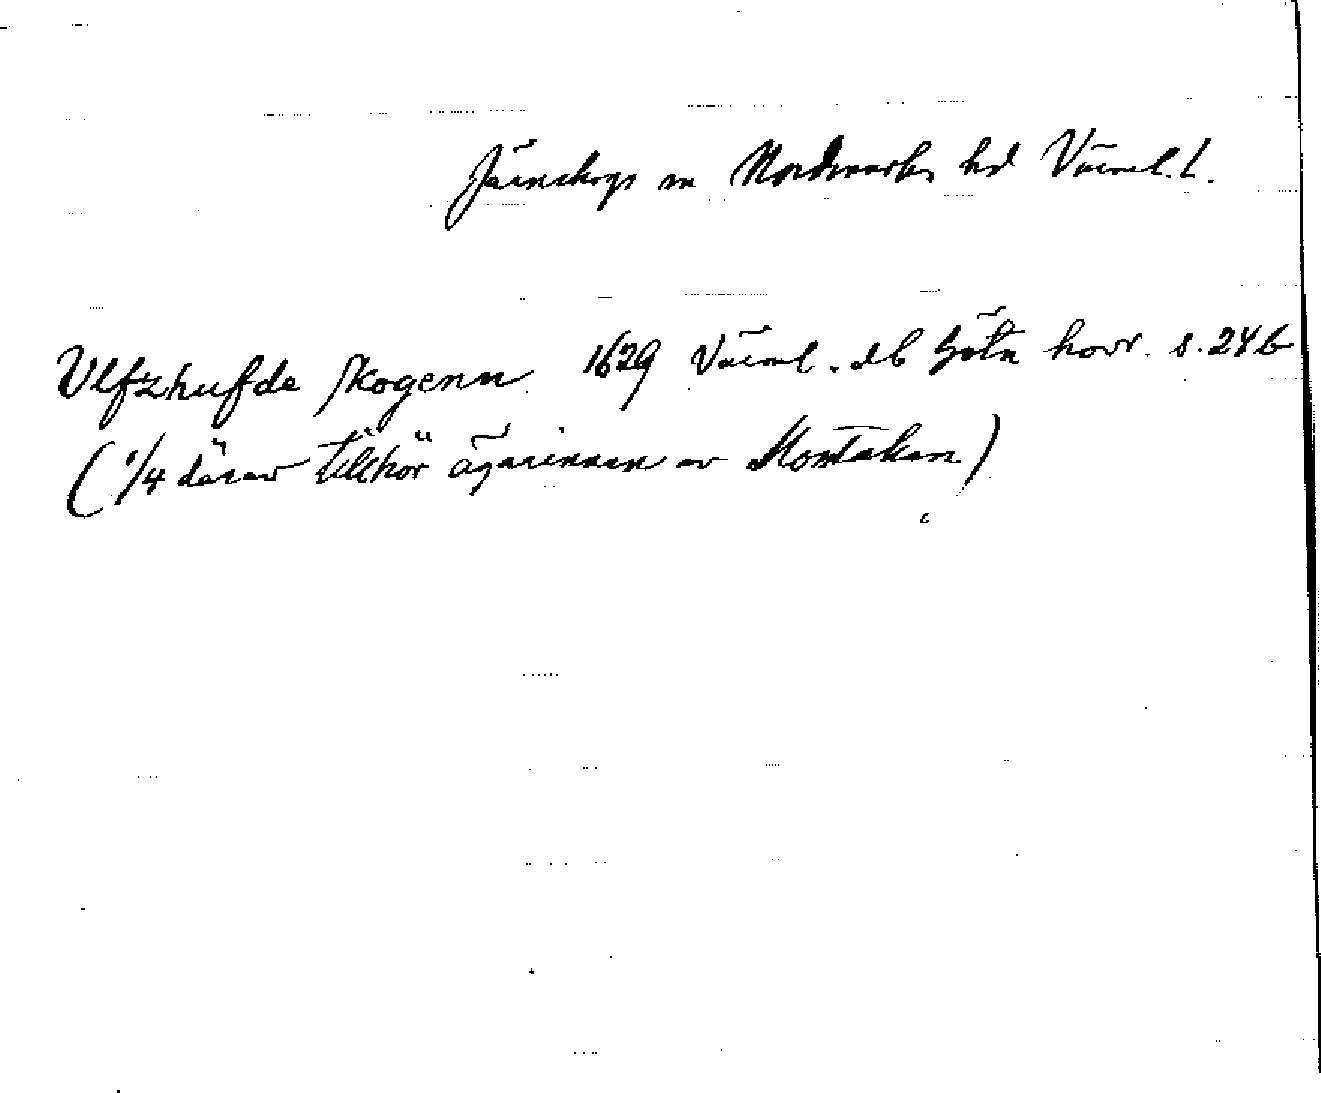 Järnskogs sn Nordmarks hd Värml. l.
Ulfzhufde skogenn 1629 Värml. db Göta hovr. s. 246
(1/4 därav tillhör ägarinnan av Montakan)